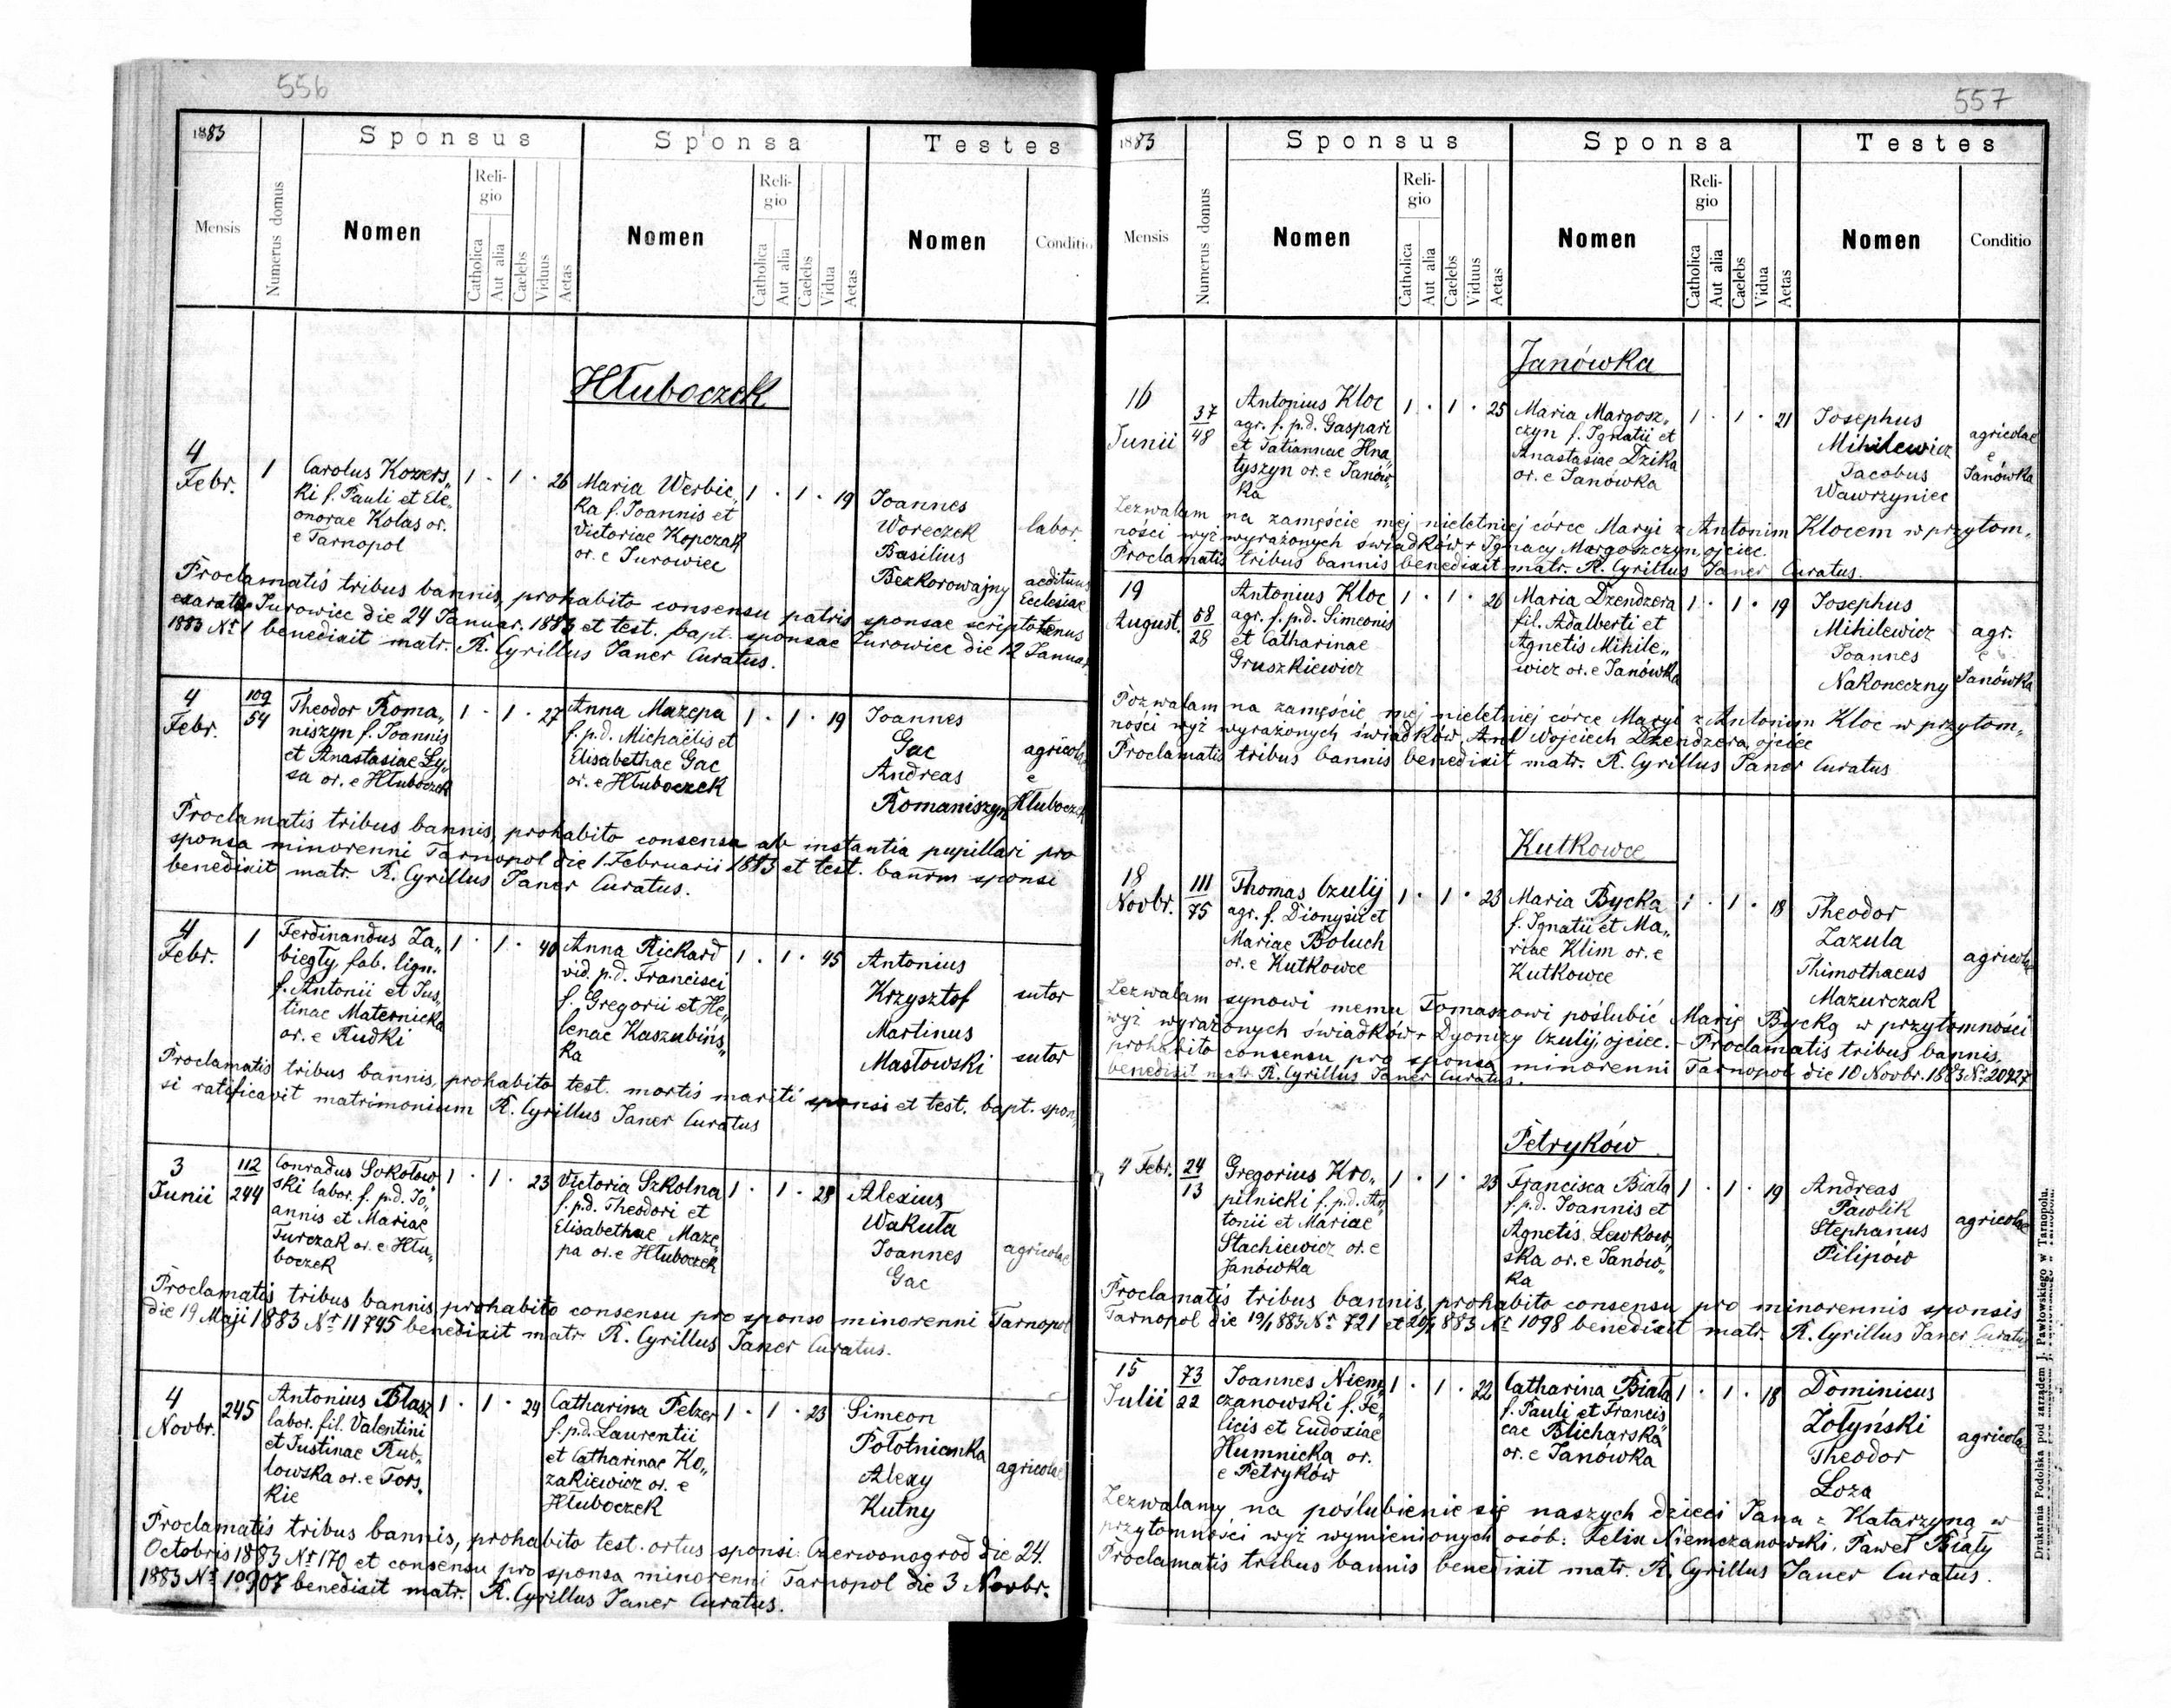 556
1883
Sponsus
Sponsa
Testes
Mensis
Numerus domus
Nomen
Religio
Catholica
Aut alia
Caelebs
Viduus
Aetas
Nomen
Religio
Catholica
Aut alia
Caelebs
Vidua
Aetas
Nomen
Conditio
Hłuboczek
4
Febr.
1
Carolus Kozers„
ki f. Pauli et Ele„
onorae Kolas or.
e Tarnopol
1 · 1 · 26
Maria Werbic„
ka f. Joannis et
Victoriae Kopczak
or. e Jurowiec
1 · 1 · 19
Joannes
Woreczek
Basilius
Bezkorowajny
labor.
aedituus
Ecclesiae
Proclamatis tribus bannis, prohabito consensu patris sponsae scriptotenus
exarato Jurowiec die 24 Januar. 1883 et test. bapt. sponsae Jurowiec die 12 Januar
1883 Nr 1 benedixit matr. R. Cyrillus Janer Curatus.
4
Febr.
109
54
Theodor Roma„
niszyn f. Joannis
et Anastasiae Ly„
sa or. e Hłuboczek
1 · 1 · 27
Anna Mazepa
f. p.d. Michaëlis et
Elisabethae Gac
or. e Hłuboczek
1 · 1 · 19
Joannes
Gac
Andreas
Romaniszyn
agricolae
e
Hłuboczek
Proclamatis tribus bannis, prohabito consensu ab instantia pupillari pro
sponsa minorenni Tarnopol die 1. Februarii 1883 et test. bannm sponsi
benedixit matr. R. Cyrillus Janer Curatus.
4
Febr.
1
Ferdinandus Za„
biegły, fab. lign.
f. Antonii et Jus„
tinae Maternicka
or. e Rudki
1 · 1 · 40
Anna Rickard
vid. p.d. Francisci
f. Gregorii et He„
lenae Kaszubińs„
ka
1 · 1 · 45
Antonius
Krzysztof
Martinus
Masłowski
sutor
sutor
Proclamatis tribus bannis, prohabito test. mortis mariti sponsi et test. bapt. spon„
si ratificavit matrimonium R. Cyrillus Janer Curatus
3
Junii
112
244
Conradus Sokołow
ski labor. f. p.d. Jo„
annis et Mariae
Turczak or. e Hłu„
boczek
1 · 1 · 23
Victoria Szkolna
f. p.d. Theodori et
Elisabethae Maze„
pa or. e Hłuboczek
1 · 1 · 28
Alexius
Wakuła
Joannes
Gac
agricolae
Proclamatis tribus bannis, prohabito consensu pro sponso minorenni Tarnopol
die 19 Maji 1883 Nr 11745 benedixit matr. R. Cyrillus Janer Curatus.
4
Novbr.
245
Antonius Błasz
labor. fil. Valentini
et Justinae Rub„
lowska or. e Tors„
kie
1 · 1 · 24
Catharina Pelzer
f. p.d. Laurentii
et Catharinae Ko„
zakiewicz or. e
Hłuboczek
1 · 1 · 23
Simeon
Połotnianka
Alexy
Kutny
agricolae
Proclamatis tribus bannis, prohabito test. ortus sponsi: Czerwonogrod die 24.
Octobris 1883 Nr 170 et consensu pro sponsa minorenni Tarnopol die 3 Novbr.
1883 Nr 10907 benedixit matr. R. Cyrillus Janer Curatus.
557
1883
Sponsus
Sponsa
Testes
Mensis
Numerus domus
Nomen
Religio
Catholica
Aut alia
Caelebs
Viduus
Aetas
Nomen
Religio
Catholica
Aut alia
Caelebs
Vidua
Aetas
Nomen
Conditio
Janówka
16
Junii
37
48
Antonius Kloc
agr. f. p.d. Gaspari
et Tatiannae Hna„
tyszyn or. e Janów„
ka
1 · 1 · 25
Maria Margosz„
czyn f. Ignatii et
Anastasiae Dzika
or. e Janówka
1 · 1 · 21
Josephus
Mihilewicz
Jacobus
Wawrzyniec
agricolae
e
Janówka
Zezwalam na zamęście mej nieletniej córce Maryi z Antonim Klocem w przytom„
ności wyż wyrażonych świadków + Ignacy Margoszczyn, ojciec.
Proclamatis tribus bannis benedixit matr. R. Cyrillus Janer Curatus.
19
August.
58
28
Antonius Kloc
agr. f. p.d. Simeonis
et Catharinae
Gruszkiewicz
1 · 1 · 26
Maria Dzendzera
fil. Adalberti et
Agnetis Mihile„
wicz or. e Janówka
1 · 1 · 19
Josephus
Mihilewicz
Joannes
Nakoneczny
agr.
e
Janówka
Pozwalam na zamęście mej nieletniej córce Maryi z Antonim Kloc w przytom„
ności wyż wyrażonych świadków Ant Wojciech Dzendzera, ojciec
Proclamatis tribus bannis benedixit matr. R. Cyrillus Janer Curatus
Kutkowce
18
Novbr.
111
75
Thomas Czulij
agr. f. Dionysii et
Mariae Boluch
or. e Kutkowce
1 · 1 · 23
Maria Bycka
f. Ignatii et Ma„
riae Klim or. e
Kutkowce
1 · 1 · 18
Theodor
Zazula
Thimothaeus
Mazurczak
agricolae
Zezwalam synowi memu Tomaszowi poślubić Marię Bycką w przytomności
wyż wyrażonych świadków + Dyonizy Czulij, ojciec. - Proclamatis tribus bannis,
prohabito consensu pro sponsa minorenni Tarnopol die 10 Novbr. 1883 Nr 20427
benedixit matr. R. Cyrillus Janer Curatus.
Petryków
4 Febr.
24
13
Gregorius Kro„
pilnicki f. p.d. An
tonii et Mariae
Stachiewicz or. e
Janówka
1 · 1 · 23
Francisca Biała
f. p.d. Joannis et
Agnetis Lewkow„
ska or. e Janów„
ka
1 · 1 · 19
Andreas
Pawlik
Stephanus
Pilipów
agricolae
Proclamatis tribus bannis, prohabito consensu pro minorennis sponsis
Tarnopol die 19/1 883 Nr 721 et 20/1 883 Nr 1098 benedixit matr. R. Cyrillus Janer Curatus
15
Julii
73
22
Joannes Niem„
czanowski f. Fe„
licis et Eudoxiae
Humnicka or.
e Petryków
1 · 1 · 22
Catharina Biała
f. Pauli et Francis
cae Blicharska
or. e Janówka
1 · 1 · 18
Dominicus
Żołyński
Theodor
Łoza
agricolae
Zezwalamy na poślubienie się naszych dzieci Jana z Katarzyną w
przytomności wyż wymienionych osób: Felix Niemczanowski. Paweł Biały
Proclamatis tribus bannis benedixit matr. R. Cyrillus Janer Curatus.
Drukarnia Podolska pod zarządem J. Pawłowskiego w Tarnopolu.